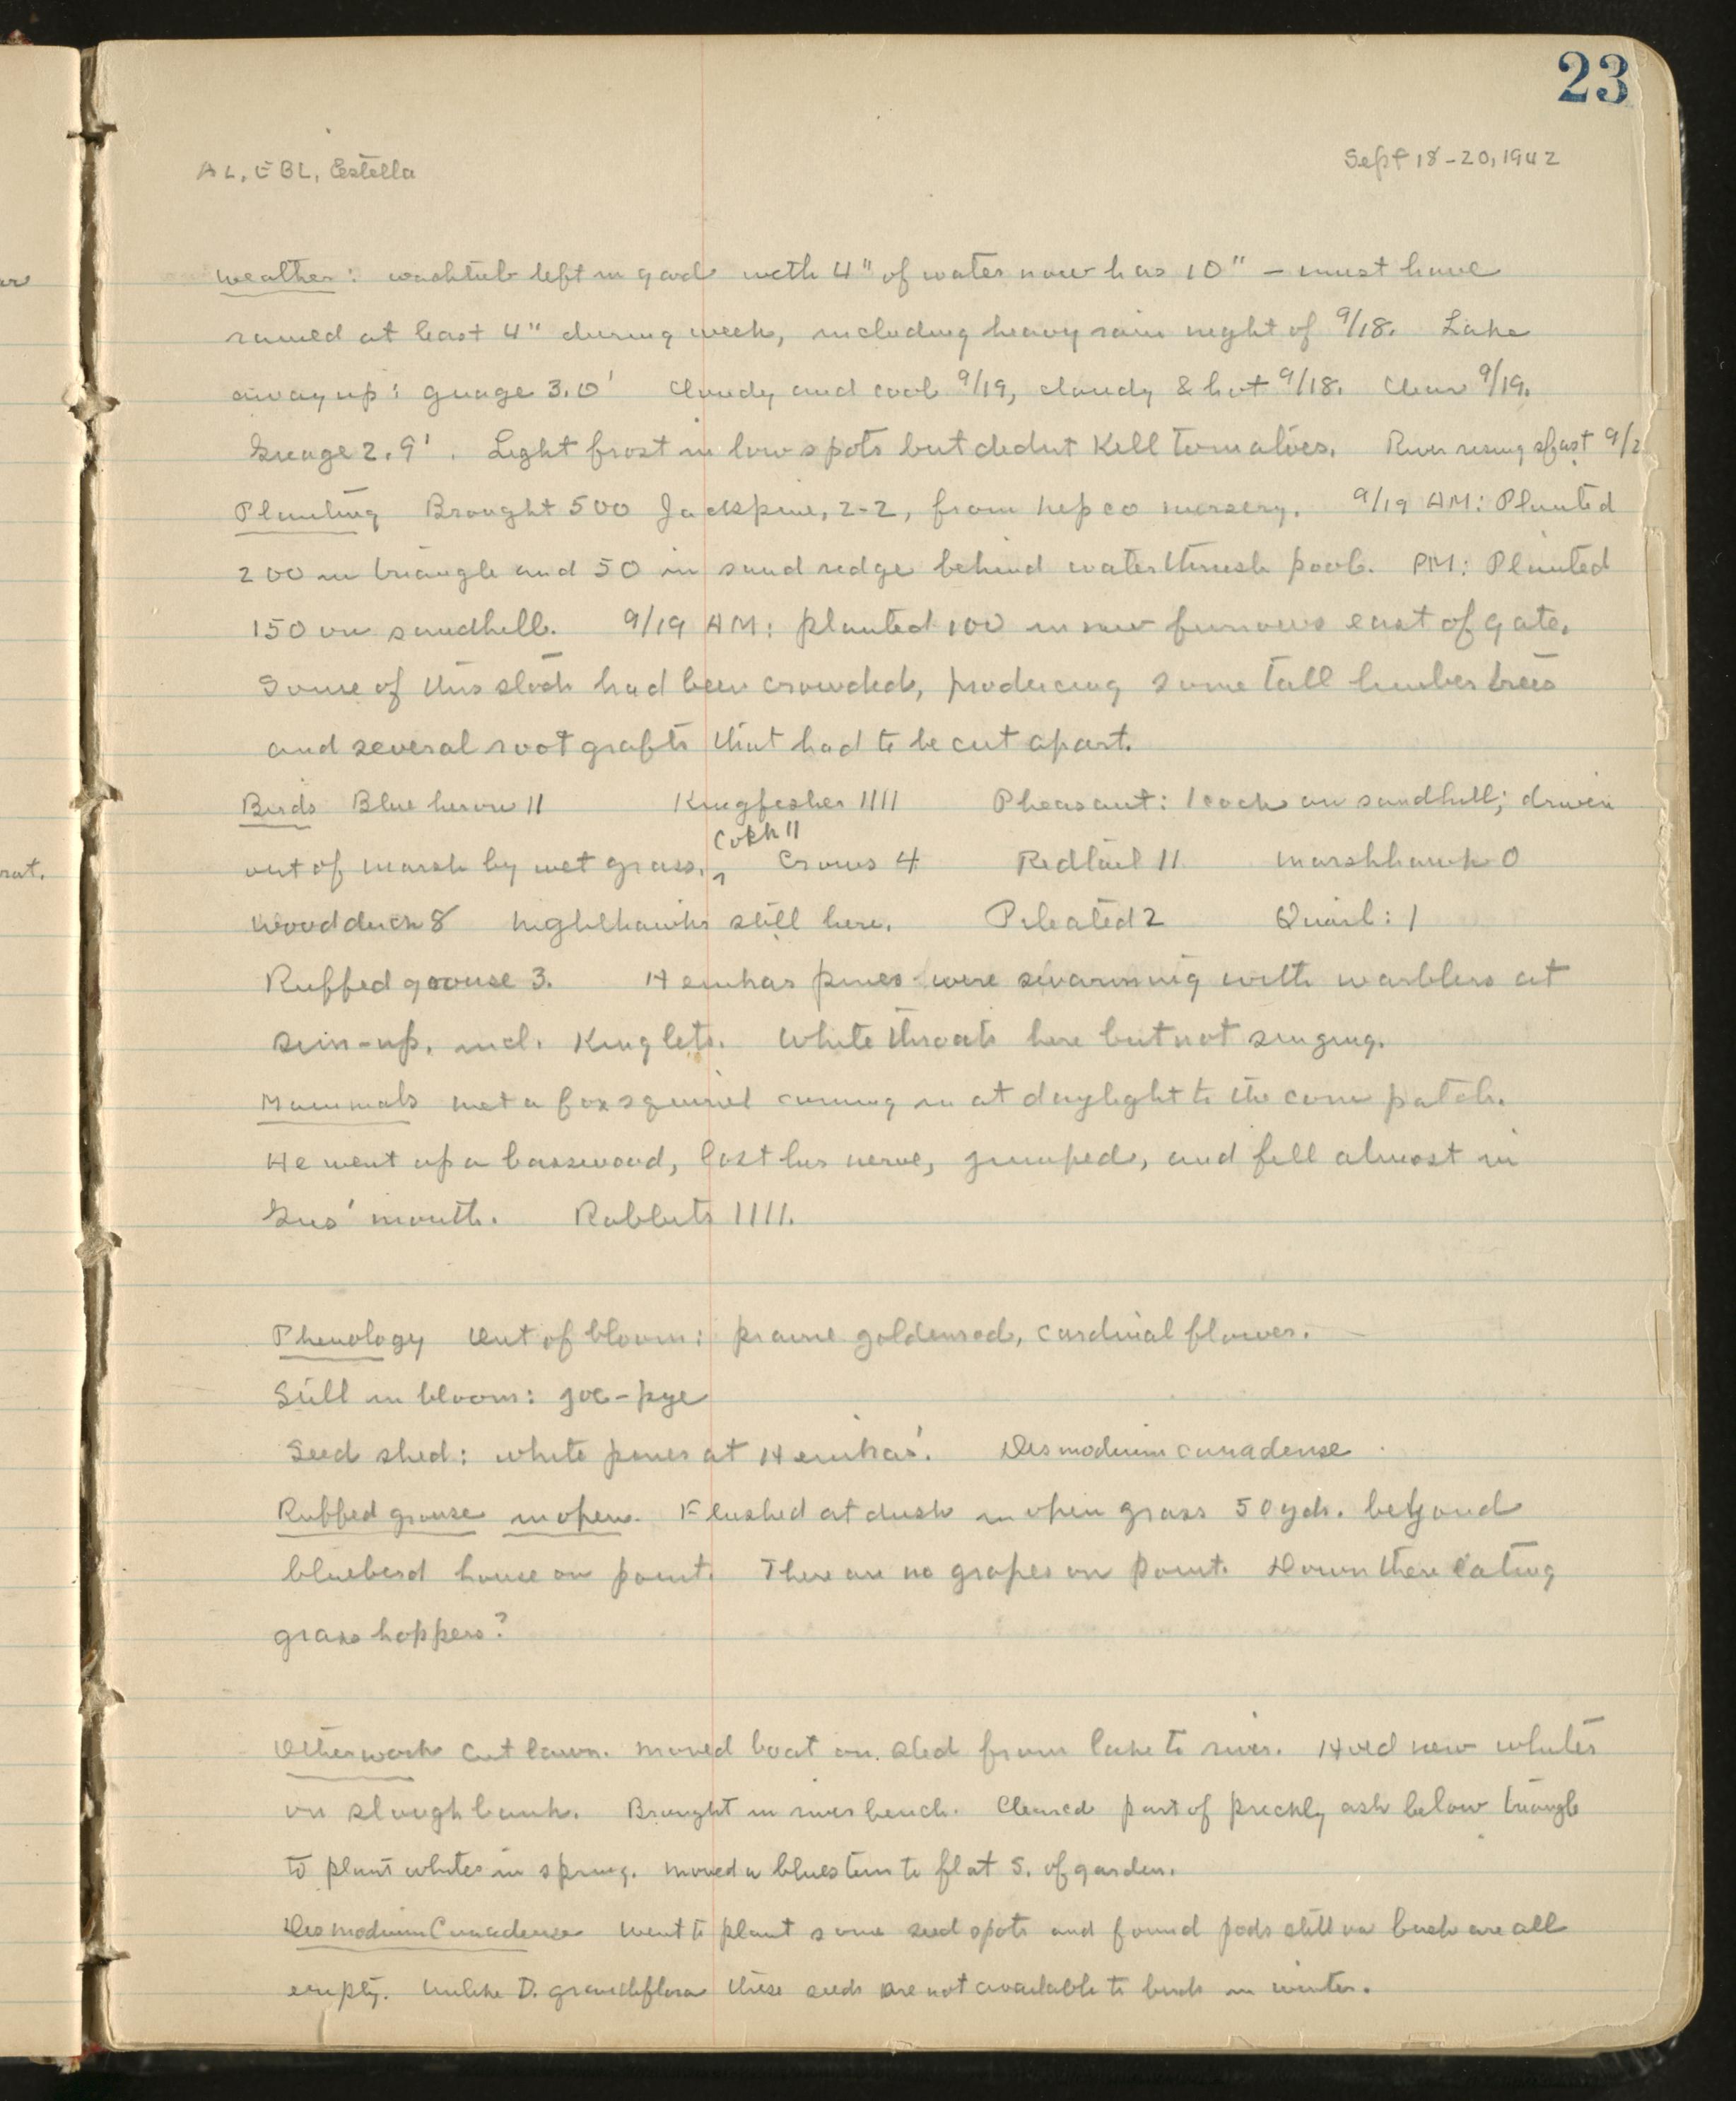 23
AL, EBL, Estella
Sept 18-20, 1942
Weather: washtub left in yard with 4" of water now has 10" – must have
rained at least 4" during week, including heavy rain night of 9/18. Lake
away up: guage 3.0' Cloudy and cool 9/19, cloudy & hot 9/18. Clear 9/19.
Guage 2.9'. Light frost in low spots but didnt kill tomatoes. River rising fast 9/2
Planting Brought 500 Jackpine, 2-2, from Nepco nursery. 9/19 AM: Planted
200 in triangle and 50 in sand redge behind waterthrush pool. PM: Planted
150 on sandhill. 9/19 AM: planted 100 in new furrows east of gate.
Some of this stock had been crowded, producing some tall limber trees
and several root grafts that had to be cut apart.
Birds Blue heron 11 Kingfisher 1111 Pheasant: 1 cock on sandhill; driven
Cokh 11
out of marsh by wet grass. Crows 4 Redtail 11 Marshhawk 0
Woodduck 8 Nighthawks still here. Pileated 2 Quail: 1
Ruffed grouse 3. Hemkas pines were swarming with warblers at
sun-up, incl. Kinglets. White throats here but not singing.
Mammals met a fox squirrel coming in at daylight to the corn patch.
He went up a basswood, lost his nerve, jumped, and fell almost in
Gus' mouth. Rabbits 1111.
Phenology Out of bloom: prairie goldenrod, cardinal flower.
Still in bloom: joe-pye
Seed shed: white pines at Hemkas'. Desmodium canadense
Ruffed grouse in open. Flushed at dusk in open grass 50 yds. beyond
bluebird house on point. There are no grapes on point. Down there eating
grasshoppers?
Other work Cut lawn. Moved boat on sled from lake to river. Hoed new whites
on slough bank. Brought in river bench. Cleared part of prickly ash below triangle
to plant whites in spring. Moved a bluestem to flat S. of garden.
Desmodium Canadense Went to plant some seed spots and found pods still on bush are all
empty. Unlike D. grandiflora these seeds are not available to birds in winter.